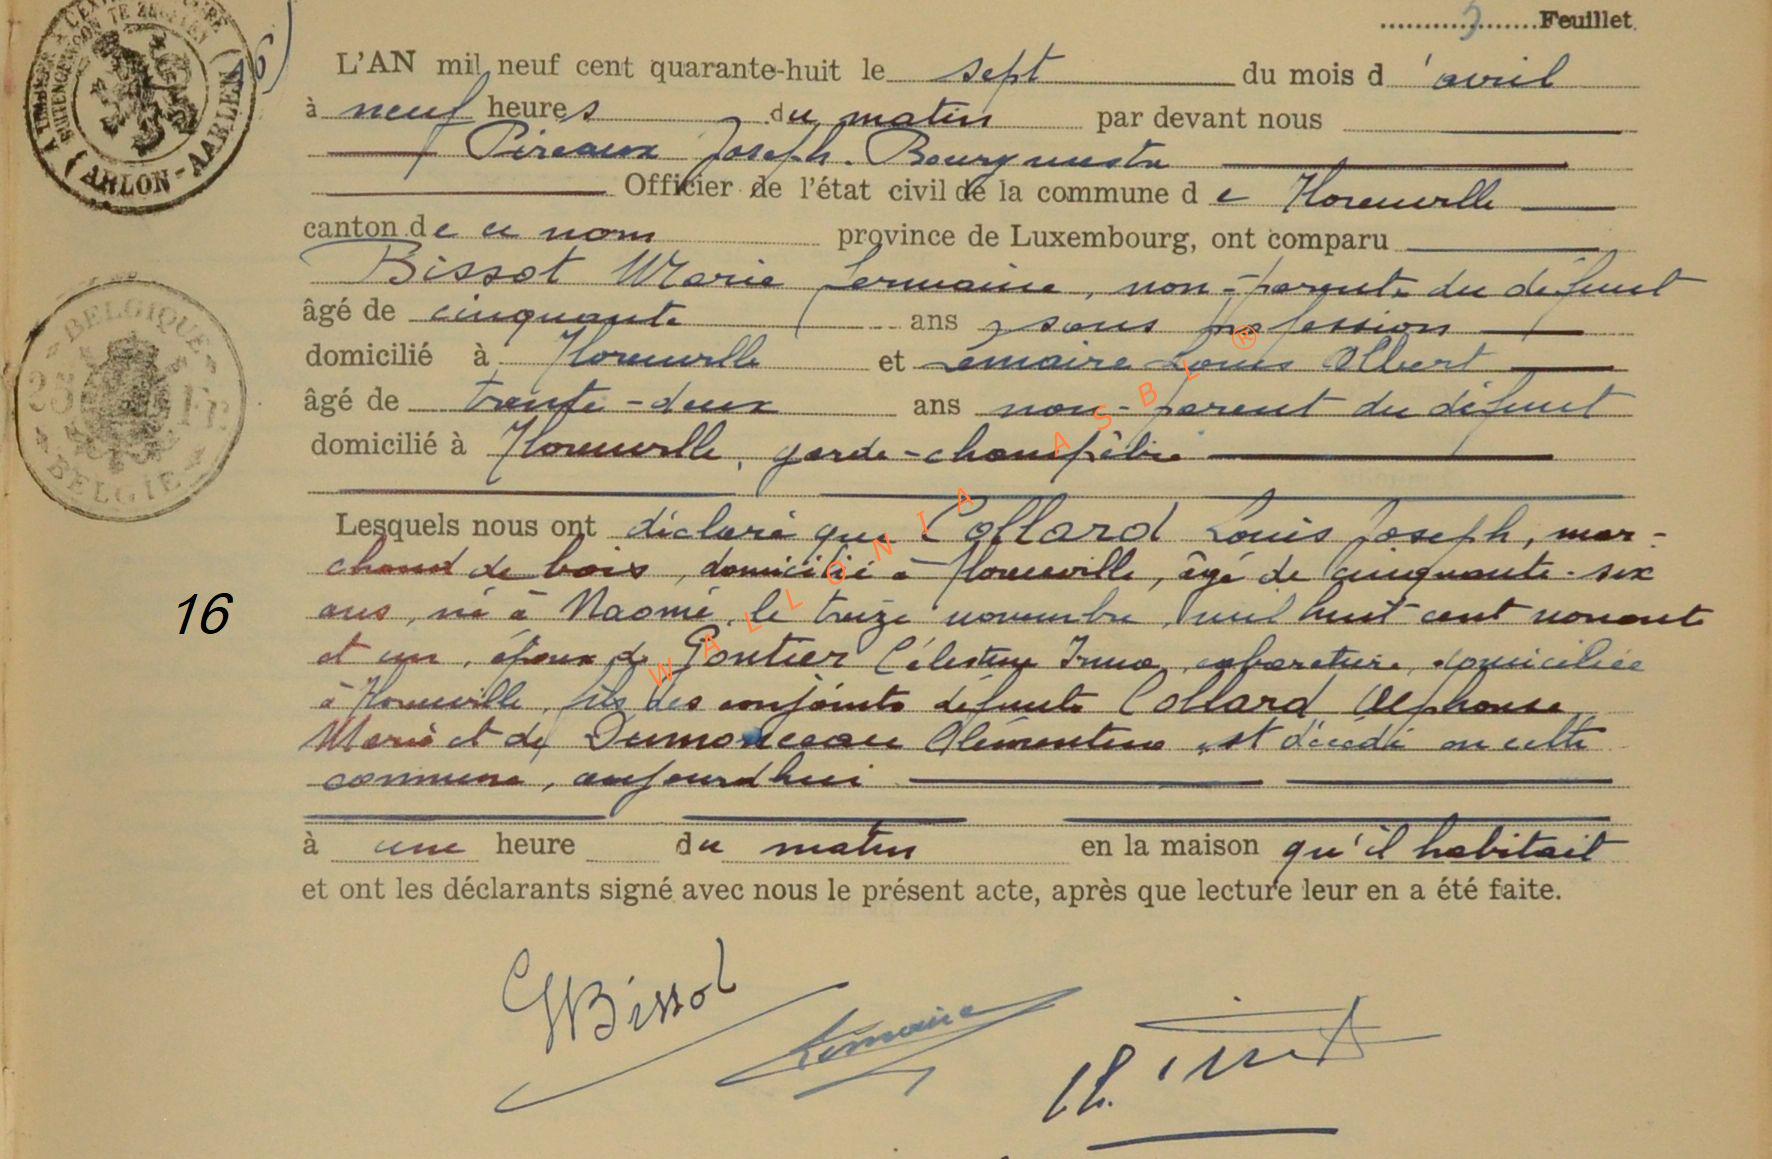 5 Feuillet.
L'AN mil neuf cent quarante-huit le sept du mois d'avril
à neuf heures du matin par devant nous
Pireaux Joseph. Bourgmestre
Officier de l'état civil de la commune de Florenville
canton de ce nom province de Luxembourg, ont comparu
Bissot Marie Germaine, non-parente du défunt
âgé de cinquante ans, sans profession
domicilié à Florenville et Lemaire Louis Albert
âgé de trente-deux ans non-parent du défunt
domicilié à Florenville, garde-champêtre
Lesquels nous ont déclaré que Collard Louis Joseph, mar-
chand de bois, domicilié à Florenville, âgé de cinquante-six
16
ans, né à Naomé, le treize novembre mil huit cent nonante
et un, époux de Gontier Célestine Irma, cabaretière, domiciliée
à Florenville, fils des conjoints défunts Collard Alphonse
Marie et de Dumonceau Clémentine, est décédé en cette
commune, aujourd'hui
à une heure du matin en la maison qu'il habitait
et ont les déclarants signé avec nous le présent acte, après que lecture leur en a été faite.
GBissot
Lemaire
(ARLON-AARLEN)
BELGIQUE
2 Fr
BELGIE
WALLONIA ASBL ®